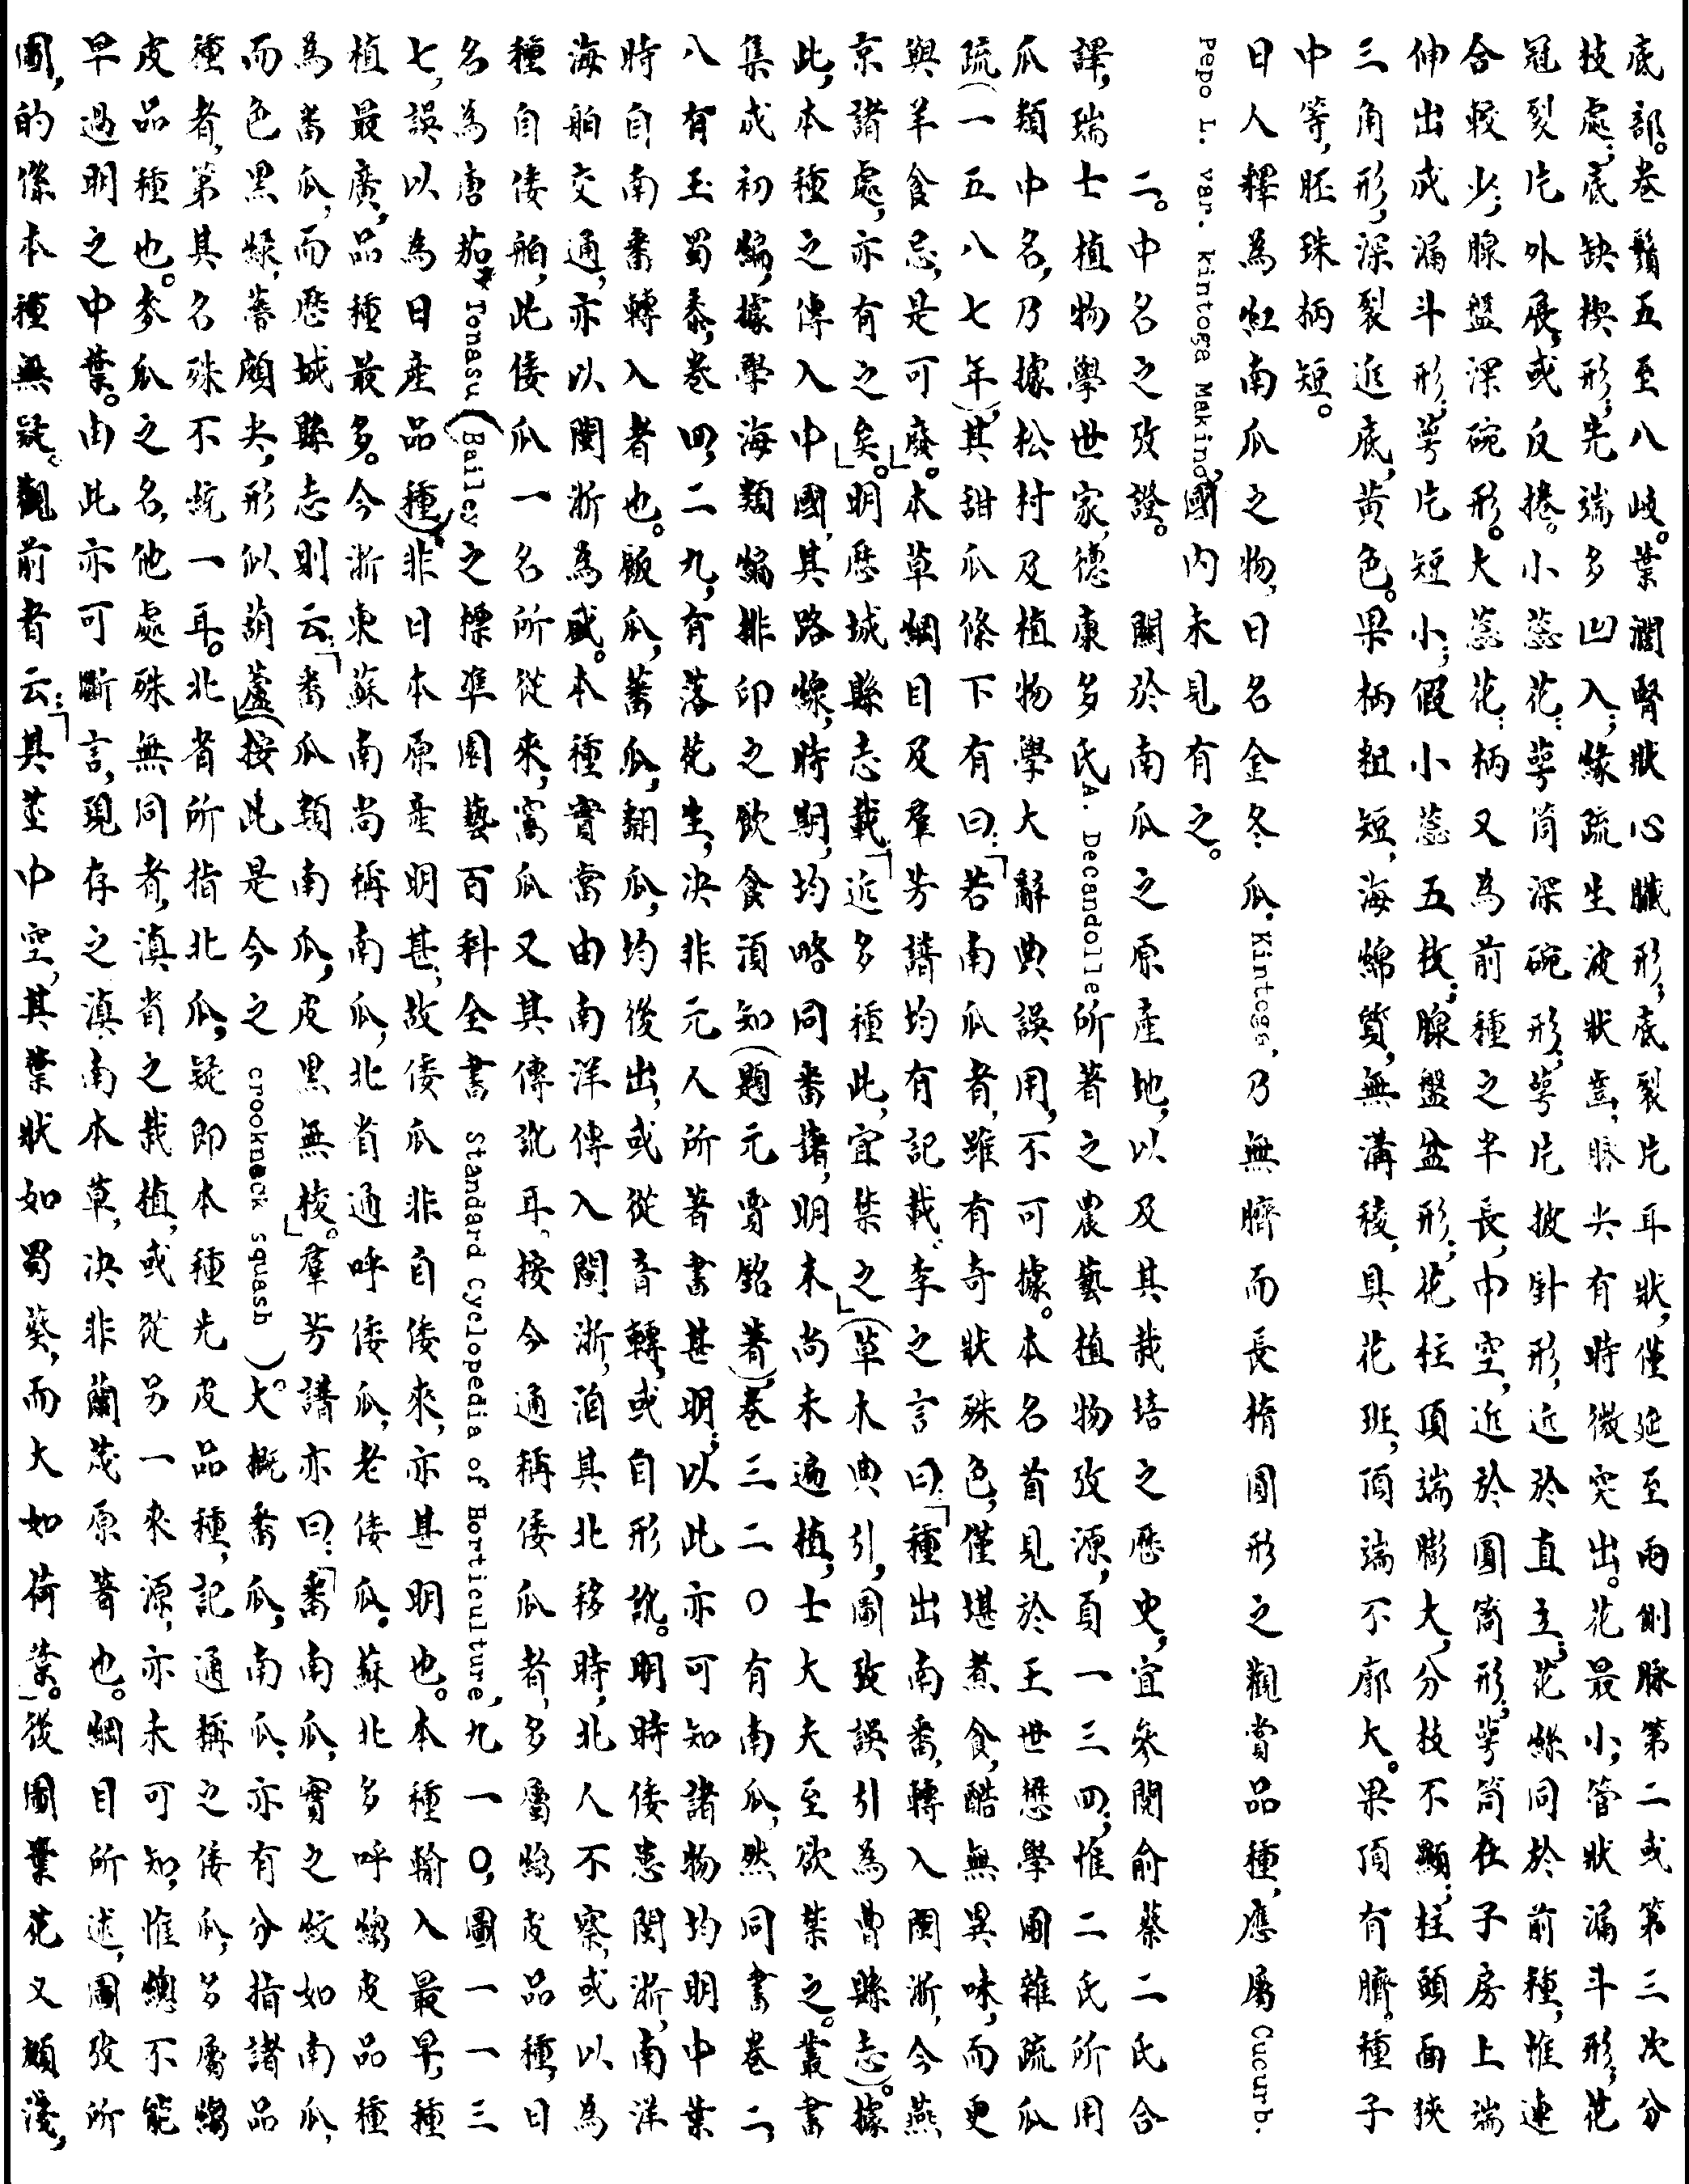 底部。卷鬚五至八歧。葉濶腎狀心臟形，底裂片耳狀，僅延至兩側脉第二或第三次分
枝處；底缺楔形；先端多凹入；緣疏生波狀齒，脉尖有時微突出。花最小，管狀漏斗形，花
冠裂片外展，或反捲。小蕊花：萼筒深碗形；萼片披針形，近於直立；花絲同於前種，惟連
合較少；腺盤深碗形。大蕊花：柄又為前種之半長，中空，近於圓筒形；萼筒在子房上端
伸出成漏斗形；萼片短小；假小蕊五枚；腺盤盆形；花柱頂端膨大，分枝不顯；柱頭面狹
三角形，深裂近底，黃色。果柄粗短，海綿質，無溝稜，具花斑，頂端不廓大。果頂有臍。種子
中等，胚珠柄短。
日人釋為虹南瓜之物，日名金冬瓜·Kintoga，乃無臍而長橢圓形之觀賞品種，應屬Cucurb.
Pepo L. var. Kintoga Makino，國內未見有之。
二。中名之攷證。關於南瓜之原產地，以及其栽培之歷史，宜參閱俞蔡二氏合
譯，瑞士植物學世家，德康多氏A. Decandolle所著之農藝植物攷源，頁一三四；惟二氏所用
瓜類中名，乃據松村及植物學大辭典誤用，不可據。本名首見於王世懋學圃雜疏瓜
疏（一五八七年），其甜瓜條下有曰：「若南瓜者，雖有奇狀殊色，僅堪煮食，酷無異味，而更
與羊食忌，是可廢。」本草綱目及羣芳譜均有記載。李之言曰：「種出南番，轉入閩浙，今燕
京諸處，亦有之矣。」明歷城縣志載：「近多種此，宜禁之」（草木典引，圖攷誤引為曹縣志）。據
此，本種之傳入中國，其路線，時期，均略同番藷，明末尚未遍植，士大夫至欲禁之。叢書
集成初編，據學海類編排印之飲食須知（題元賈銘著），卷三二〇有南瓜，然同書卷二，
八有玉蜀黍，卷四，二九，有落花生，決非元人所著書甚明；以此亦可知諸物均明中葉
時自南番轉入者也。飯瓜，蕃瓜，翻瓜，均後出，或從音轉，或自形訛。明時倭患閩浙，南洋
海舶交通，亦以閩浙為盛。本種實當由南洋傳入閩浙，洎其北移時，北人不察，或以為
種自倭舶，此倭瓜一名所從來，窩瓜又其傳訛耳。按今通稱倭瓜者，多屬縐皮品種，日
名為唐茄* Tonasu（Bailey之標準園藝百科全書 Standard Cyclopedia of Horticulture，九一〇，圖一一三
七，誤以為日產品種），*非日本原產明甚，故倭瓜非自倭來，亦甚明也。本種輸入最早，種
植最廣，品種最多。今浙東蘇南尚稱南瓜，北省通呼倭瓜，老倭瓜。蘇北多呼縐皮品種
為番瓜，而歷城縣志則云：「番瓜類南瓜，皮黑無棱。」羣芳譜亦曰：「番南瓜，實之紋如南瓜，
而色黑綠，蒂頗尖，形似葫蘆」（按此是今之 crookneck squash）。大概番瓜，南瓜，亦有分指諸品
種者，第其名殊不統一耳。北省所指北瓜，疑即本種光皮品種，記通稱之倭瓜，多屬縐
皮品種也。麥瓜之名，他處殊無同者，滇省之栽植，或從另一來源，亦未可知，惟總不能
早過明之中葉。由此亦可斷言，現存之滇南本草，決非蘭茂原著也。綱目所述，圖攷所
圖，的係本種無疑。觀前者云：「其莖中空，其葉狀如蜀葵，而大如荷葉。」後圖葉花又頗淺，